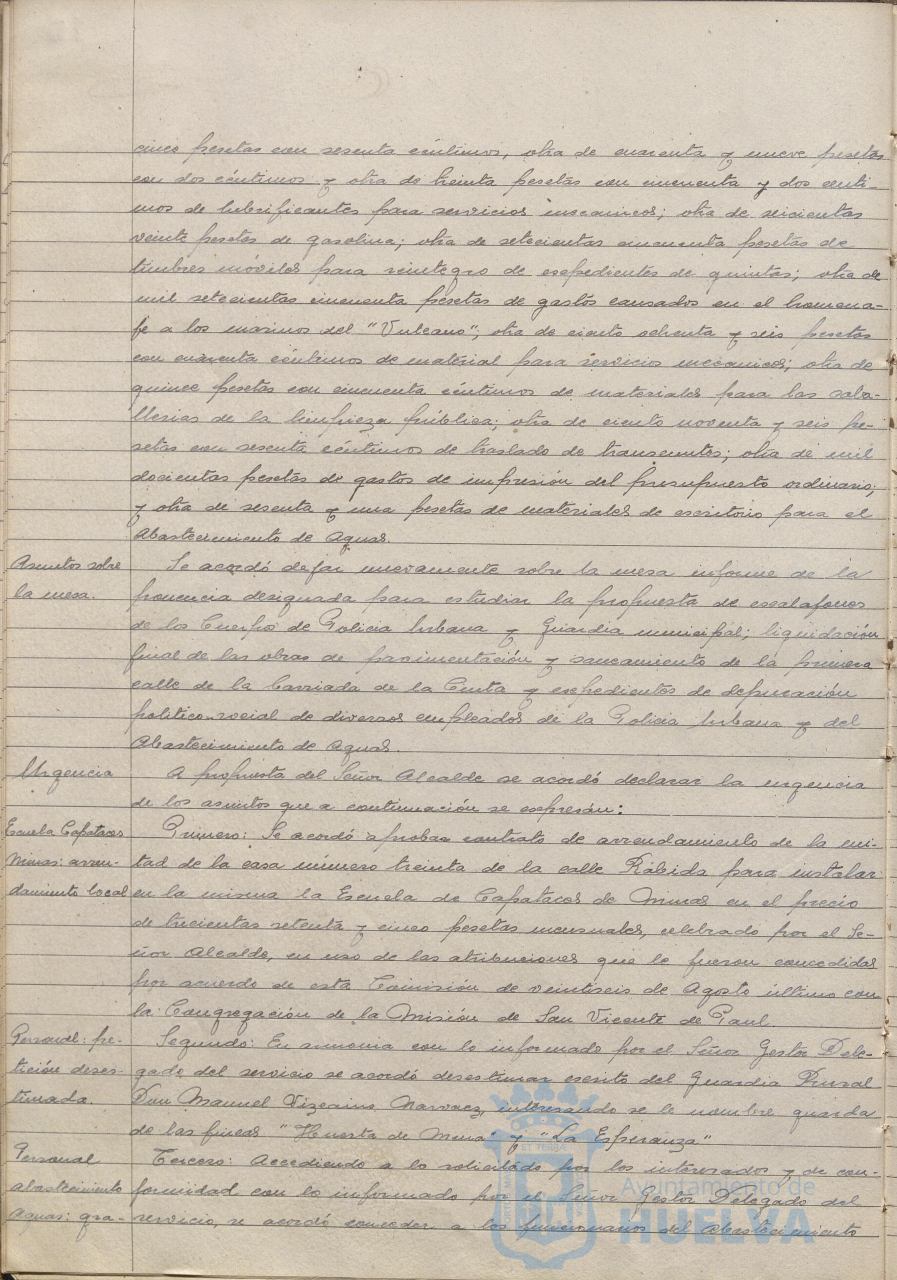 cinco pesetas con sesenta céntimos, otra de cuarenta y nueve pesetas
con dos céntimos y otra de treinta pesetas con cincuenta y dos centi-
mos de lubrificantes para servicios mecanicos; otra de seicientas
veinte pesetas de gasolina; otra de setecientas cincuenta pesetas de
timbres móviles para reintegro de expedientes de quintas; otra de
mil setecientas cincuenta pesetas de gastos causados en el homena-
je a los marinos del "Vulcano"; otra de ciento ochenta y seis pesetas
con cuarenta céntimos de material para servicios mecanicos; otra de
quince pesetas con cincuenta céntimos de materiales para las caba-
llerias de la limpieza pública; otra de ciento noventa y seis pe-
setas con sesenta céntimos de traslado de transeuntes; otra de mil
docientas pesetas de gastos de impresión del presupuesto ordinario;
y otra de sesenta y una pesetas de materiales de escritorio para el
Abastecimiento de Aguas.
Asuntos sobre la mesa.
Se acordó dejar nuevamente sobre la mesa informe de la
ponencia designada para estudiar la propuesta de escalafones
de los Cuerpos de Policia Urbana y Guardia municipal; liquidación
final de las obras de pavimentación y saneamiento de la primera
calle de la barriada de la Cinta y expedientes de depuración
politico-social de diversos empleados de la Policia Urbana y del
Abastecimiento de Aguas.
Urgencia
A propuesta del Señor Alcalde se acordó declarar la urgencia
de los asuntos que a continuación se expresan:
Escuela Capataces
Minas: arren-
damiento local
Primero: Se acordó aprobar contrato de arrendamiento de la mi-
tad de la casa número treinta de la calle Rábida para instalar
en la misma la Escuela de Capataces de Minas en el precio
de trecientas setenta y cinco pesetas mensuales, celebrado por el Se-
ñor Alcalde, en uso de las atribuciones que le fueron concedidas
por acuerdo de esta Comisión de veintiseis de Agosto último con
la Congregación de la Misión de San Vicente de Paul.
Personal: pe-
tición deses-
timada.
Segundo: En armonia con lo informado por el Señor Gestor Dele-
gado del servicio se acordó desestimar escrito del Guardia Rural
Don Manuel Vizcaino Narvaez, interesando se le nombre guarda
de las fincas "Huerta de Mena" y "La Esperanza"
Personal
abastecimiento
Aguas: gra-
Tercero: Accediendo a lo solicitado por los interesados y de con-
formidad con lo informado por el Señor Gestor Delegado del
servicio, se acordó conceder a los funcionarios del Abastecimiento
Ayuntamiento de
HUELVA